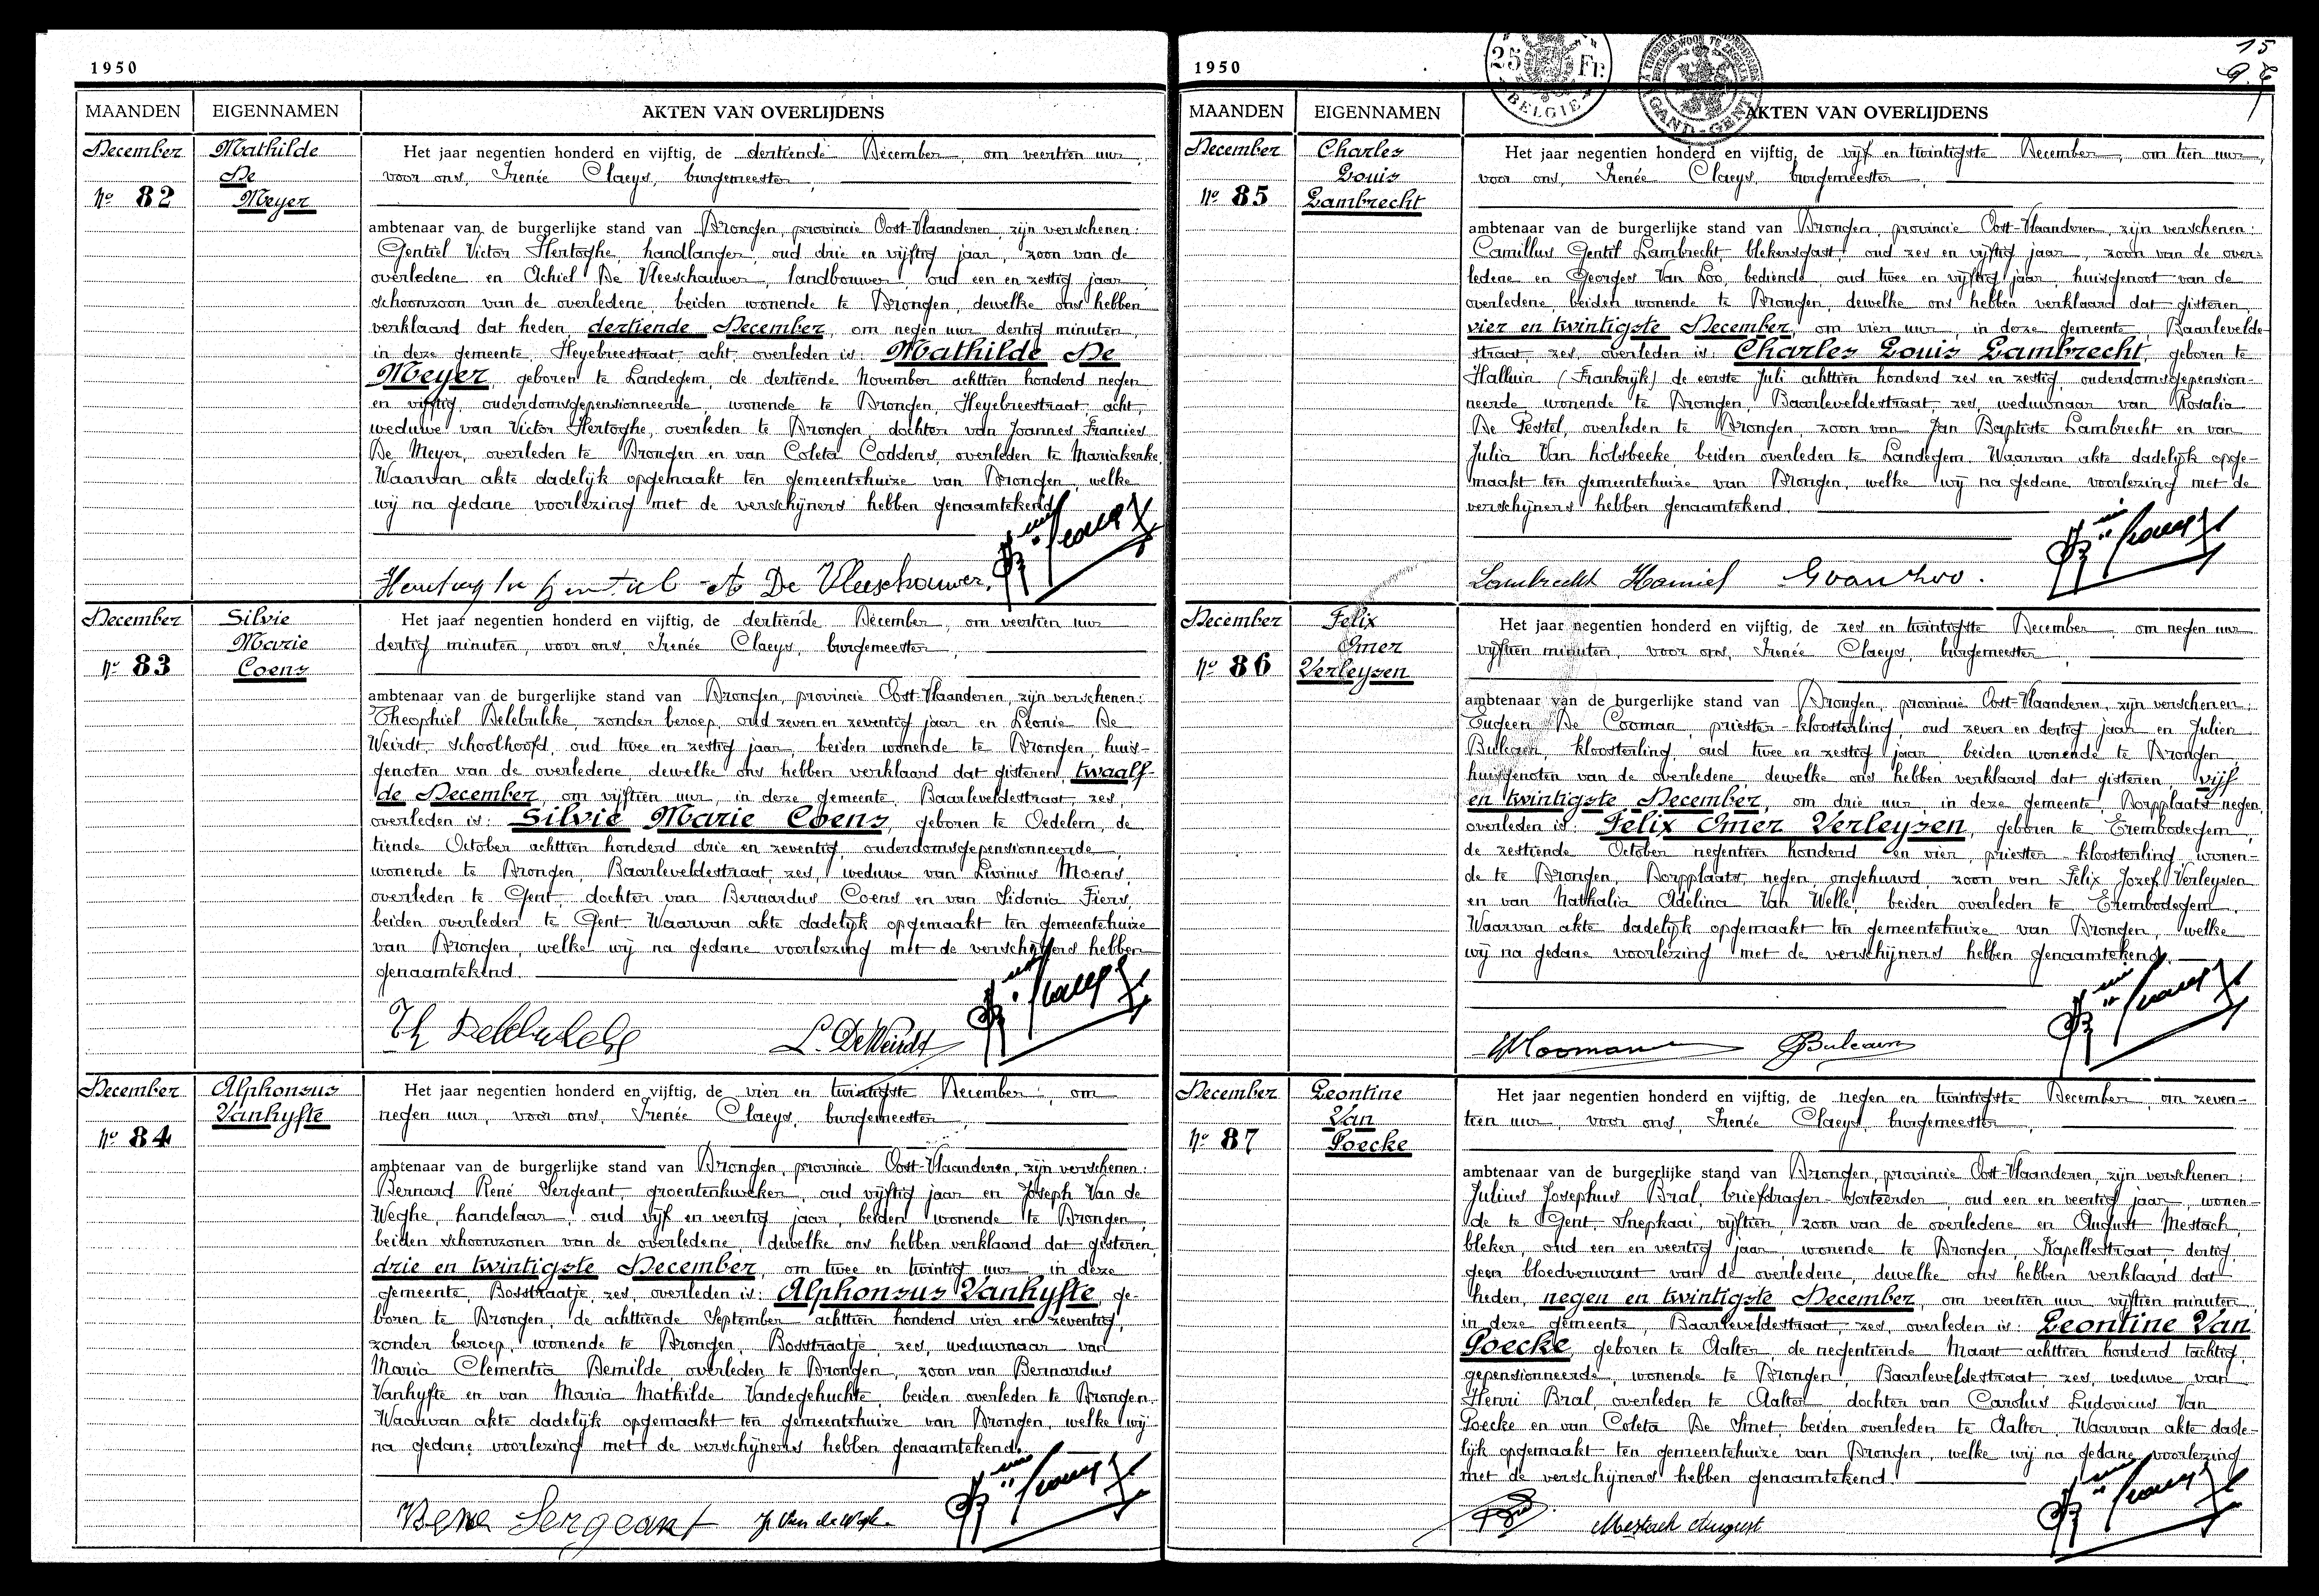 1950
MAANDEN EIGENNAMEN AKTEN VAN OVERLIJDENS
December
Nº 82
Mathilde
De
Meyer
Het jaar negentien honderd en vijftig, de dertiende December, om veertien uur,
voor ons, Irenée Claeys, burgemeester,
ambtenaar van de burgerlijke stand van Drongen, provincie Oost-Vlaanderen, zijn verschenen:
Gentiel Victor Hertoghe, handlanger, oud drie en vijftig jaar, zoon van de
overledene en Achiel De Vleeschauwer, landbouwer, oud een en zestig jaar,
schoonzoon van de overledene, beiden wonende te Drongen, dewelke ons hebben
verklaard dat heden, dertiende December, om negen uur dertig minuten,
in deze gemeente, Heyebreestraat, acht, overleden is: Mathilde De
Meyer, geboren te Landegem, de dertiende November achttien honderd negen
en vijftig, ouderdomsgepensionneerde, wonende te Drongen, Heyebreestraat, acht,
weduwe van Victor Hertoghe, overleden te Drongen, dochter van Joannes Francies
De Meyer, overleden te Drongen en van Coleta Coddens, overleden te Mariakerke.
Waarvan akte dadelijk opgemaakt ten gemeentehuize van Drongen, welke
wij na gedane voorlezing met de verschijners hebben genaamtekend.
De Vleeschauwer
December
Nº 83
Silvie
Marie
Coens
Het jaar negentien honderd en vijftig, de dertiende December, om veertien uur
dertig minuten, voor ons, Irenée Claeys, burgemeester,
ambtenaar van de burgerlijke stand van Drongen, provincie Oost-Vlaanderen, zijn verschenen:
Theophiel Delebulke, zonder beroep, oud zeven en zeventig jaar en Leonie De
Weirdt, schoolhoofd, oud twee en zestig jaar, beiden wonende te Drongen, huis-
genoten van de overledene, dewelke ons hebben verklaard dat gisteren, twaalf-
de December, om vijftien uur, in deze gemeente, Baarleveldestraat, zes,
overleden is: Silvie Marie Coens, geboren te Oedelem, de
tiende October achttien honderd drie en zeventig, ouderdomsgepensionneerde,
wonende te Drongen, Baarleveldestraat, zes, weduwe van Livinus Moens,
overleden te Gent, dochter van Bernardus Coens en van Sidonia Fiers,
beiden overleden te Gent. Waarvan akte dadelijk opgemaakt ten gemeentehuize
van Drongen, welke wij na gedane voorlezing met de verschijners hebben
genaamtekend.
L. De Weirdt
December
Nº 84
Alphonsus
Vanhyfte
Het jaar negentien honderd en vijftig, de vier en twintigste December, om
negen uur, voor ons, Irenée Claeys, burgemeester,
ambtenaar van de burgerlijke stand van Drongen, provincie Oost-Vlaanderen, zijn verschenen:
Bernard René Sergeant, groentenkweker, oud vijftig jaar en Joseph Van de
Weghe, handelaar, oud vijf en veertig jaar, beiden wonende te Drongen,
beiden schoonzonen van de overledene, dewelke ons hebben verklaard dat gisteren,
drie en twintigste December, om twee en twintig uur, in deze
gemeente, Bosstraatje, zes, overleden is: Alphonsus Vanhyfte, ge-
boren te Drongen, de achttiende September achttien honderd vier en zeventig,
zonder beroep, wonende te Drongen, Bosstraatje, zes, weduwnaar van
Maria Clementia Demilde, overleden te Drongen, zoon van Bernardus
Vanhyfte en van Maria Mathilde Vandegehuchte, beiden overleden te Drongen.
Waarvan akte dadelijk opgemaakt ten gemeentehuize van Drongen, welke wij
na gedane voorlezing met de verschijners hebben genaamtekend.
Sergeant
1950
25 Fr.
BELGIE
GAND-GENT
15
MAANDEN EIGENNAMEN AKTEN VAN OVERLIJDENS
December
Nº 85
Charles
Louis
Lambrecht
Het jaar negentien honderd en vijftig, de vijf en twintigste December, om tien uur,
voor ons, Irenée Claeys, burgemeester,
ambtenaar van de burgerlijke stand van Drongen, provincie Oost-Vlaanderen, zijn verschenen:
Camillus Gentil Lambrecht, blekersgast, oud zes en vijftig jaar, zoon van de over-
ledene en Georges Van Loo, bediende, oud twee en vijftig jaar, huisgenoot van de
overledene, beiden wonende te Drongen, dewelke ons hebben verklaard dat gisteren,
vier en twintigste December, om vier uur, in deze gemeente, Baarlevelde-
straat, zes, overleden is: Charles Louis Lambrecht, geboren te
Halluin (Frankrijk) de eerste Juli achttien honderd zes en zestig, ouderdomsgepension-
neerde, wonende te Drongen, Baarleveldestraat, zes, weduwnaar van Rosalia
De Pestel, overleden te Drongen, zoon van Jan Baptiste Lambrecht en van
Julia Van holsbeeke, beiden overleden te Landegem. Waarvan akte dadelijk opge-
maakt ten gemeentehuize van Drongen, welke wij na gedane voorlezing met de
verschijners hebben genaamtekend.
Lambrecht Kamiel G van Loo.
December
Nº 86
Felix
Omer
Verleysen
Het jaar negentien honderd en vijftig, de zes en twintigste December, om negen uur
vijftien minuten, voor ons, Irenée Claeys, burgemeester,
ambtenaar van de burgerlijke stand van Drongen, provincie Oost-Vlaanderen, zijn verschenen:
Eugeen De Cooman, priester-kloosterling, oud zeven en dertig jaar en Julien
Bulcaen, kloosterling, oud twee en zestig jaar, beiden wonende te Drongen,
huisgenoten van de overledene, dewelke ons hebben verklaard dat gisteren, vijf
en twintigste December, om drie uur, in deze gemeente, Dorpplaats, negen,
overleden is: Felix Omer Verleysen, geboren te Erembodegem,
de zestiende October negentien honderd en vier, priester-kloosterling, wonen-
de te Drongen, Dorpplaats, negen, ongehuwd, zoon van Felix Jozef Verleysen
en van Nathalia Adelina Van Welle, beiden overleden te Erembodegem.
Waarvan akte dadelijk opgemaakt ten gemeentehuize van Drongen, welke
wij na gedane voorlezing met de verschijners hebben genaamtekend.
December
Nº 87
Leontine
Van
Poecke
Het jaar negentien honderd en vijftig, de negen en twintigste December, om zeven-
tien uur, voor ons, Irenée Claeys, burgemeester,
ambtenaar van de burgerlijke stand van Drongen, provincie Oost-Vlaanderen, zijn verschenen:
Julius Josephus Bral, briefdrager-sorteerder, oud een en veertig jaar, wonen-
de te Gent, Snepkaai, vijftien, zoon van de overledene en August Mestach,
bleker, oud een en veertig jaar, wonende te Drongen, Kapellestraat, dertig,
geen bloedverwant van de overledene, dewelke ons hebben verklaard dat
heden, negen en twintigste December, om veertien uur vijftien minuten,
in deze gemeente, Baarleveldestraat, zes, overleden is: Leontine Van
Poecke, geboren te Aalter, de negentiende Maart achttien honderd tachtig,
gepensionneerde, wonende te Drongen, Baarleveldestraat, zes, weduwe van
Henri Bral, overleden te Aalter, dochter van Carolus Ludovicus Van
Poecke en van Coleta De Smet, beiden overleden te Aalter. Waarvan akte dade-
lijk opgemaakt ten gemeentehuize van Drongen, welke wij na gedane voorlezing
met de verschijners hebben genaamtekend.
Mestach August